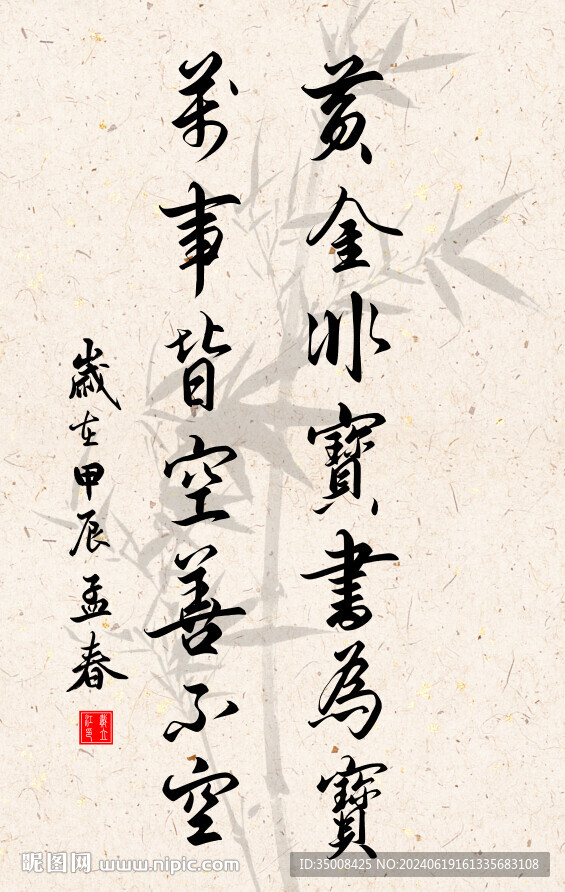 黃金非寶書為寶
萬事皆空善不空
歲在甲辰孟春
昵图网 www.nipic.com
ID:35008425 NO:20240619161335683108